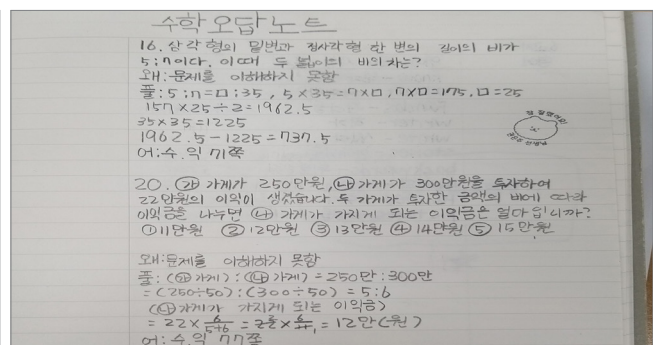 수학오답노트
16. 삼각형의 밑변과 정사각형 한 변의 길이의 비가
5:7이다. 이때 두 넓이의 비의 차는?
왜:문제를 이해하지 못함
풀:5:7=□:35, 5×35=7×□, 7×□=175, □=25
157×25÷2=1962.5
35×35=1225
1962.5-1225=737.5
어:수.익 71쪽
참 잘했어요!
선생님
20. ㉮ 가게가 250만원, ㉯ 가게가 300만원을 투자하여
22만원의 이익이 생겼습니다. 두 가게가 투자한 금액의 비에 따라
이익금을 나누면 ㉯ 가게가 가지게 되는 이익금은 얼마입니까?
①11만원 ②12만원 ③13만원 ④14만원 ⑤15만원
왜:문제를 이해하지 못함
풀:(㉮가게):(㉯가게)=250만:300만
=(250÷50):(300÷50)=5:6
(㉯가게가 가지게 되는 이익금)
=22×6/5+6=22×6/11=12만(원)
어:수.익 77쪽